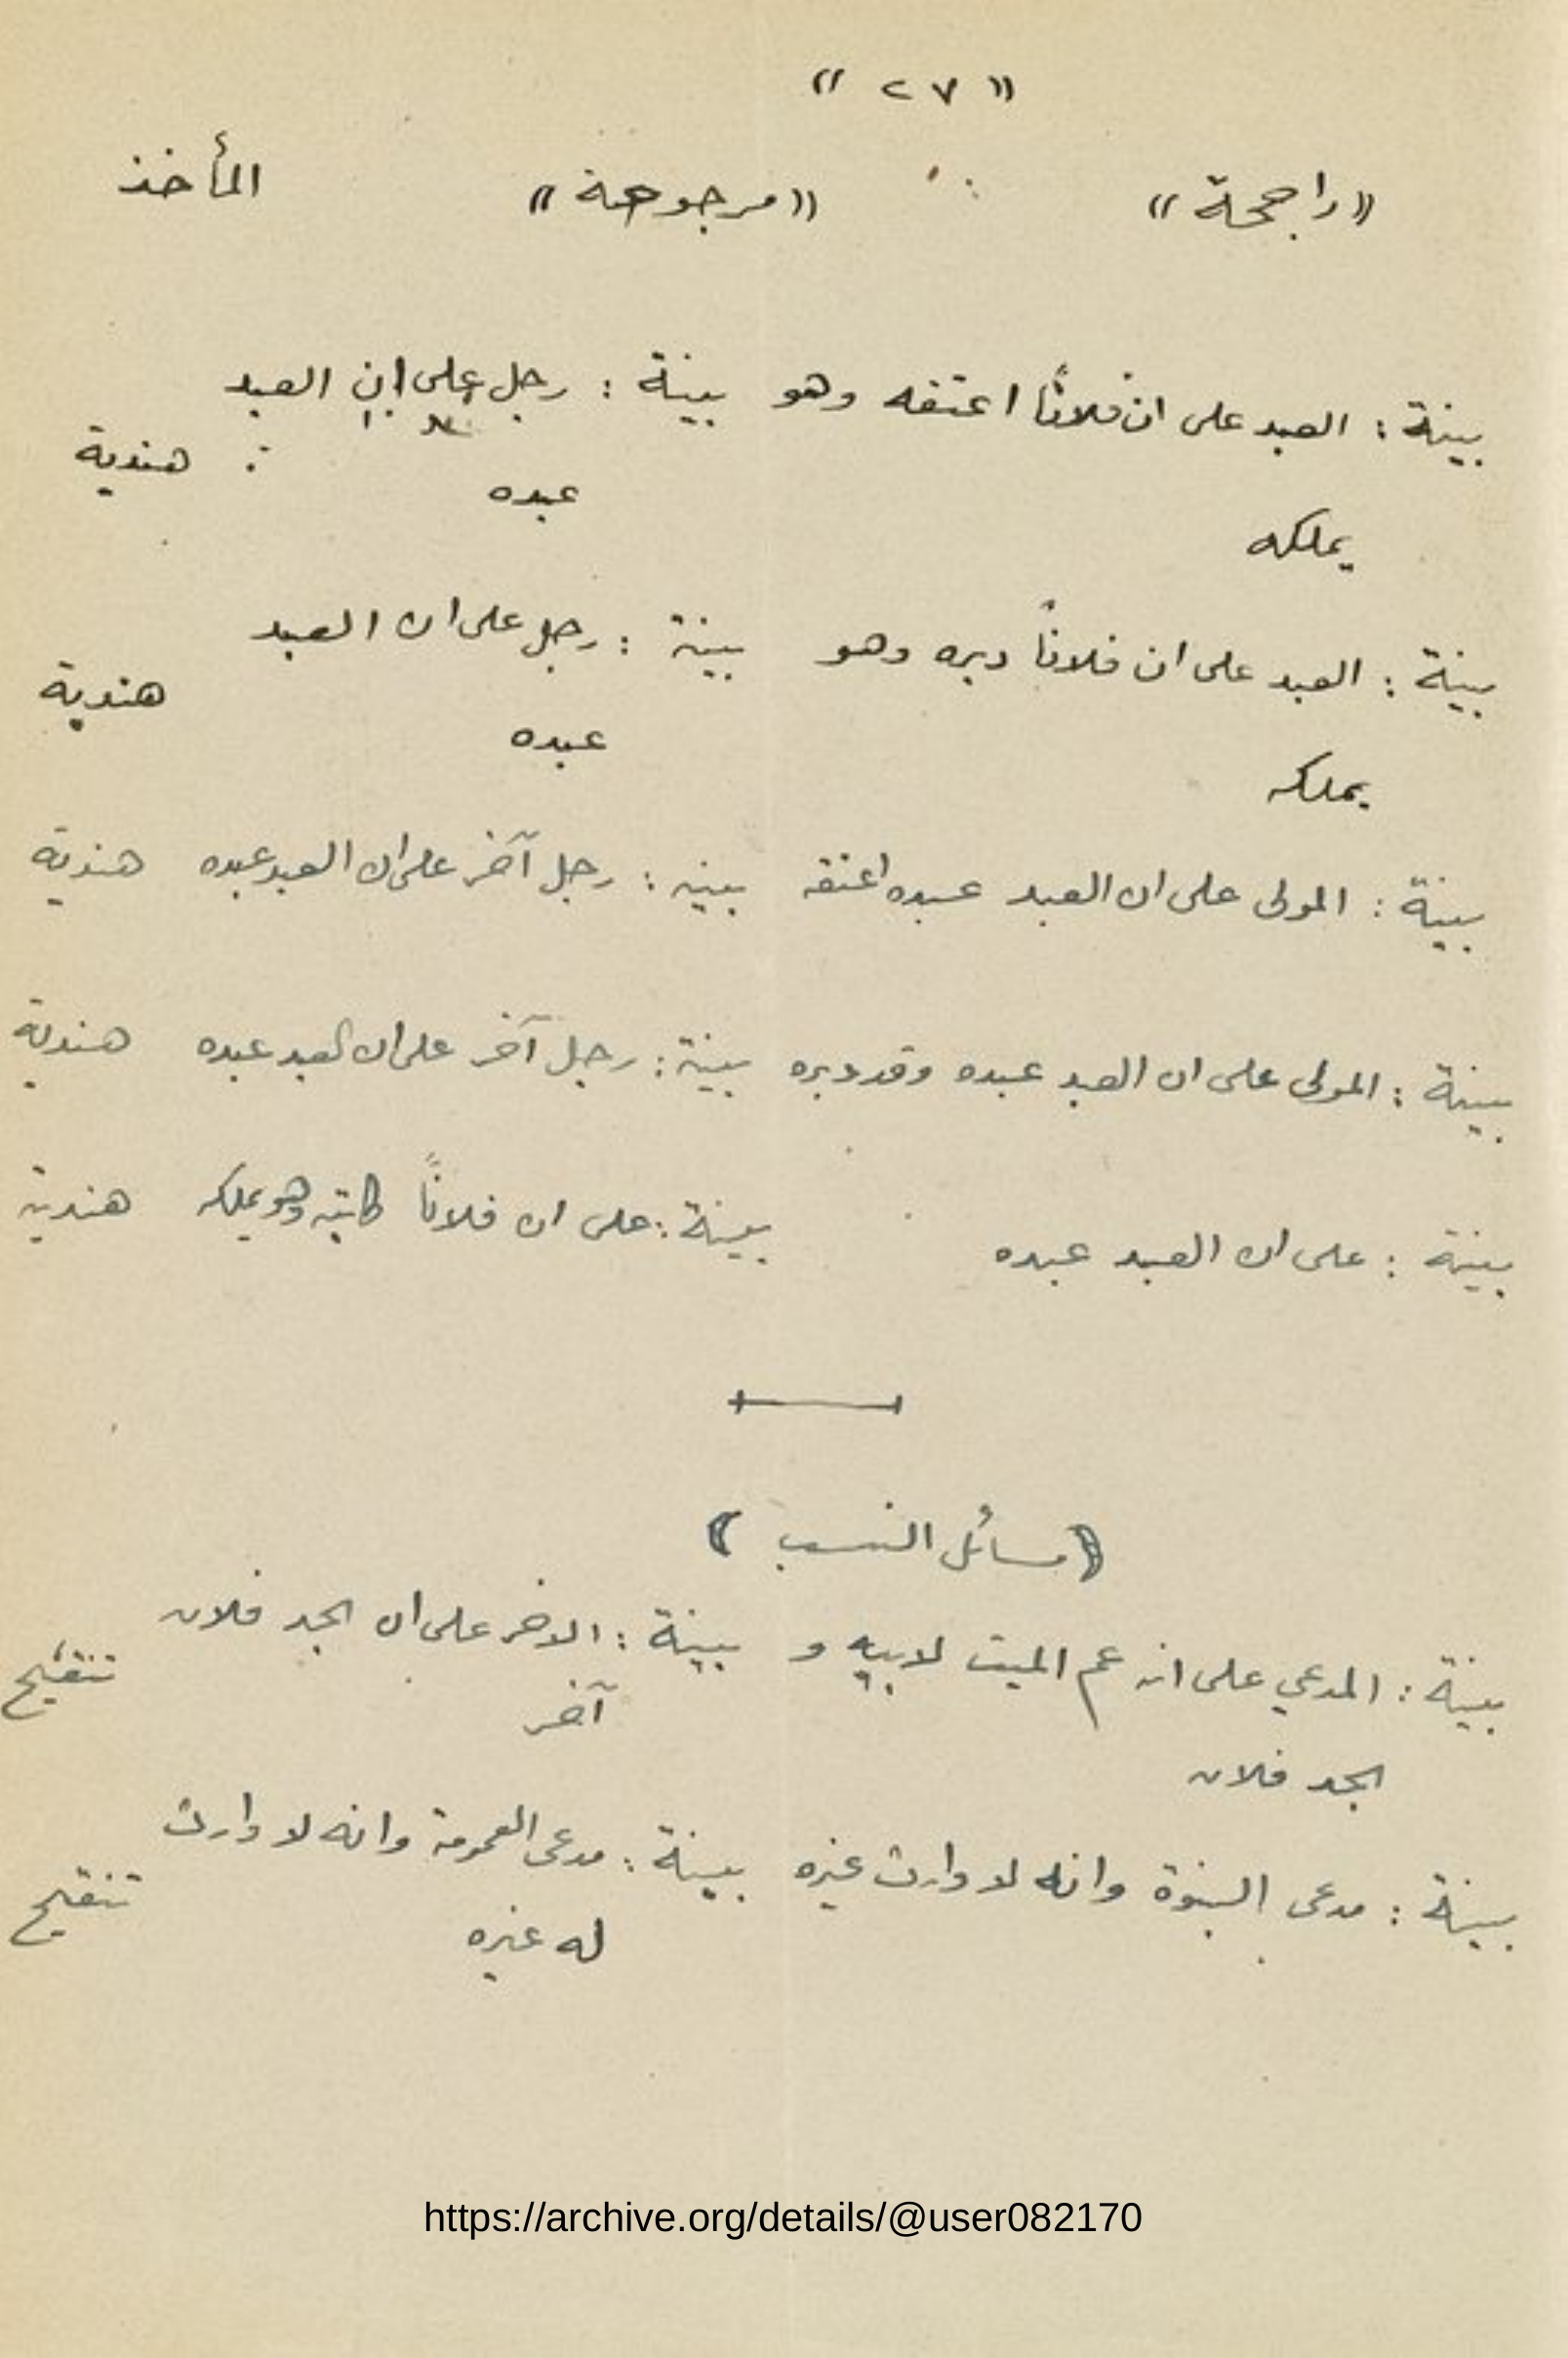 « ٢٧ »
«راجحة» «مرجوحة» المأخذ
بينة : العبد على ان فلانًا اعتقه وهو بينة : رجل على ان العبد
عبده هندية
يملكه
بينة : العبد على ان فلانًا دبره وهو بينة : رجل على ان العبد
عبده هندية
يملكه
بينة : المولى على ان العبد عبده اعتقه بينة : رجل آخر على ان العبد عبده هندية
بينة : المولى على ان العبد عبده وقد دبره بينة : رجل آخر على ان العبد عبده هندية
بينة : على ان العبد عبده بينة : على ان فلانًا كاتبه وهو يملكه هندية
(مسائل النسب)
بينة : المدعي على انه عم الميت لابيه و بينة : الاخر على ان الجد فلان
آخر تنقيح
الجد فلان
بينة : مدعى البنوة وانه لا وارث غيره بينة : مدعى العمومة وانه لا وارث
له غيره تنقيح
https://archive.org/details/@user082170